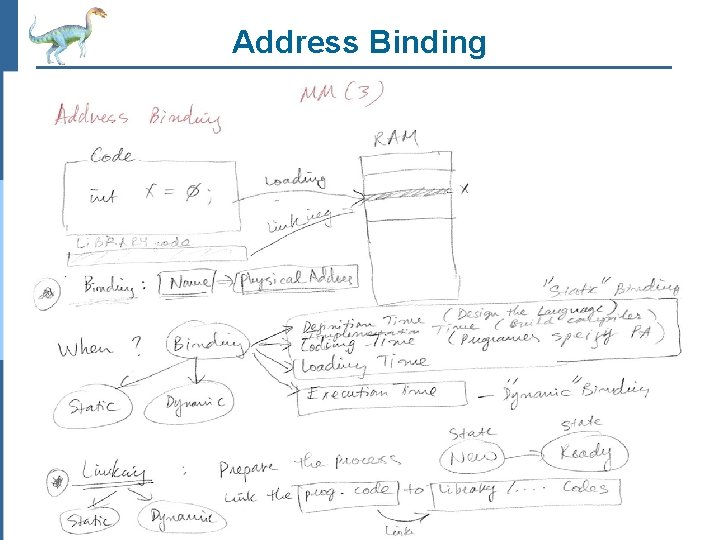 Address Binding
MM (3)
Address Binding
RAM
Code
int X = 0;
Loading
X
Linking
LIBRARY code
Binding: Name => Physical Addre
"Static" Binding
Definition Time (Design the Language)
Implementation Time (Build compilers)
When? Binding
Coding Time (Programers speify PA)
Loading Time
Execution Time - "Dynamic" Binding
Static Dynamic
State State
Linking : Prepare the process New Ready
Link the prog. code to Library /.... Codes
Static Dynamic
Link